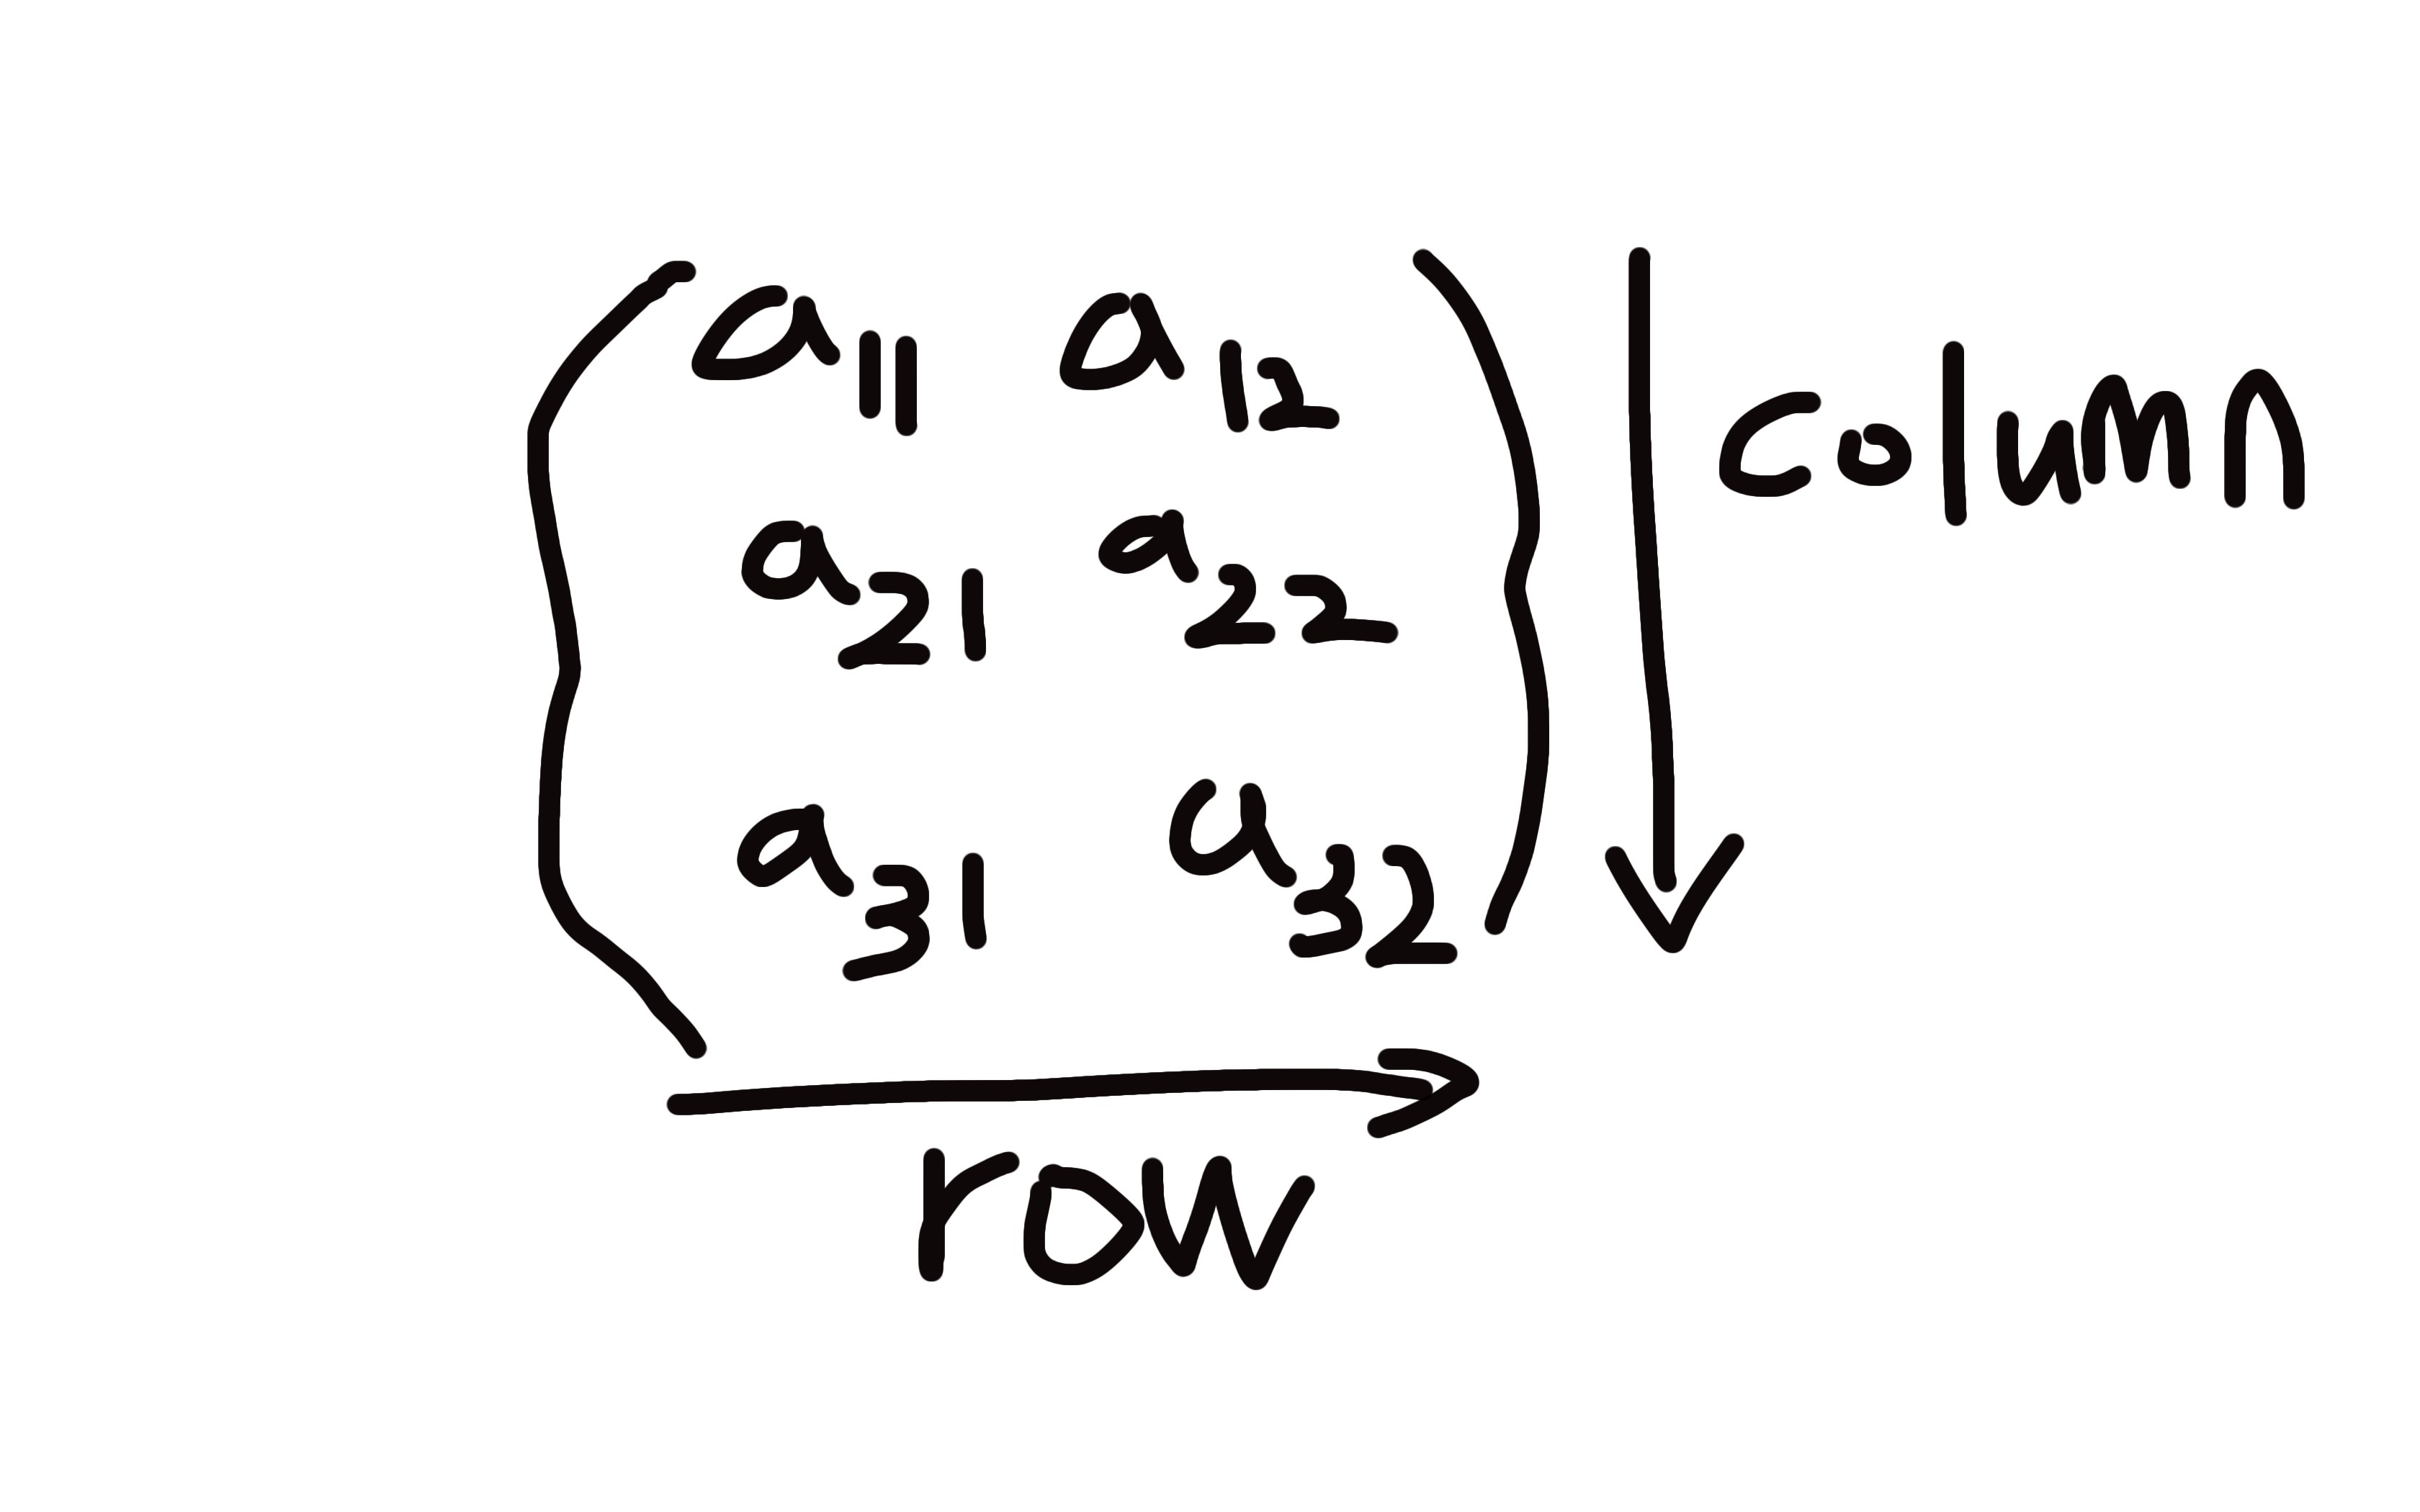 a11 a12
a21 a22
a31 a32
column
row